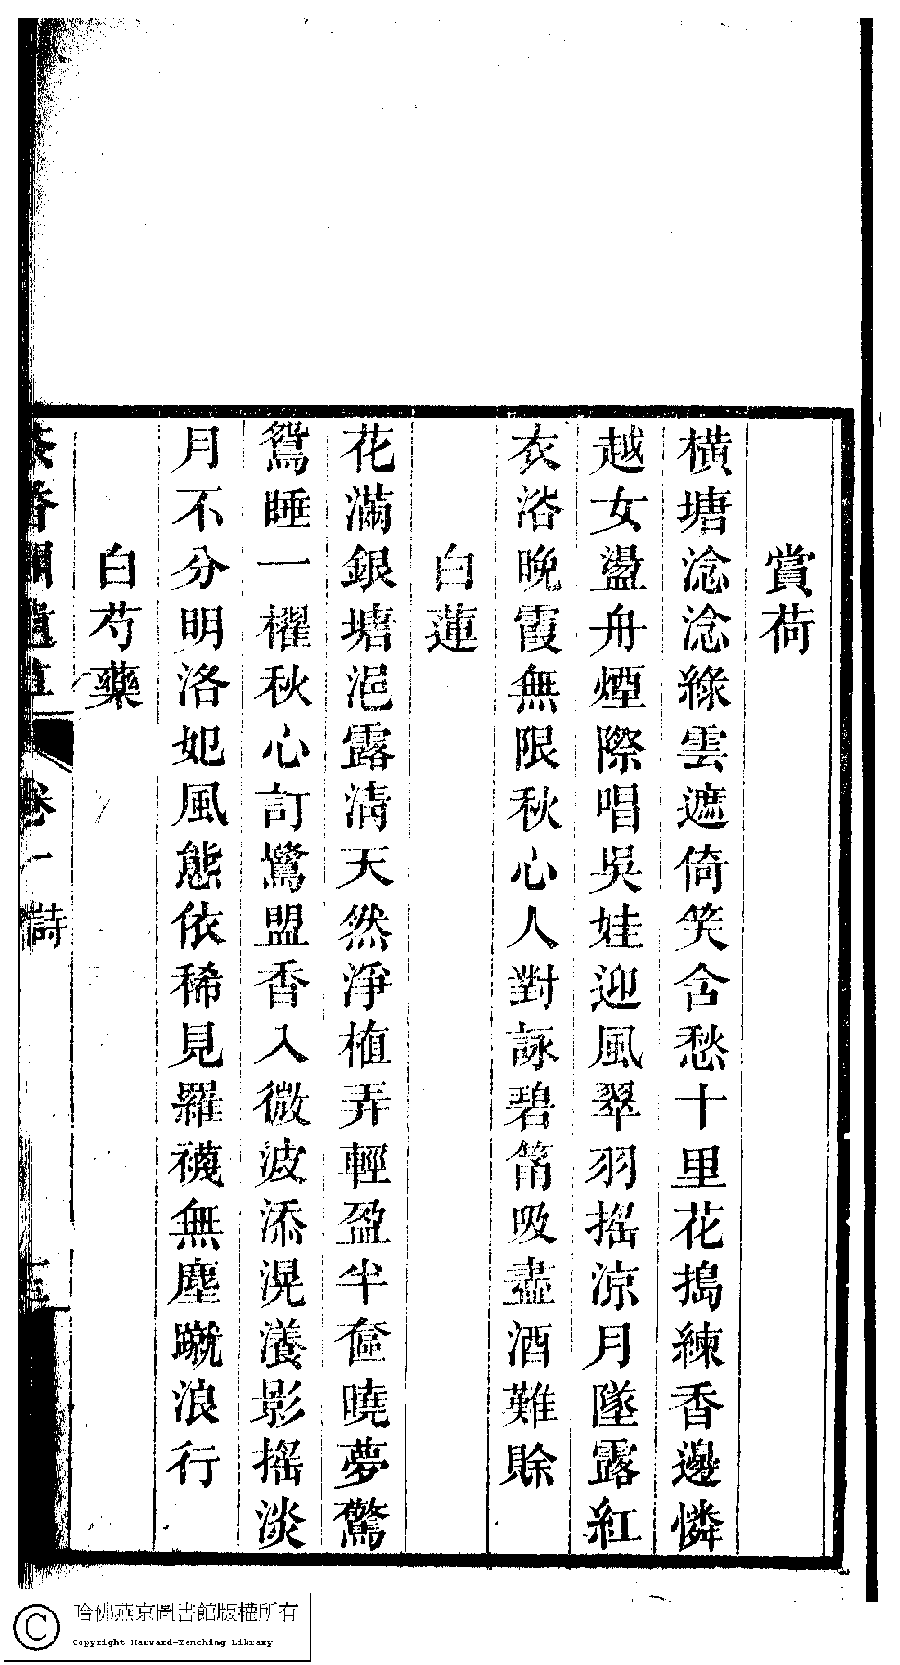 賞荷
橫塘淰淰綠雲遮倚笑含愁十里花搗練香邊憐
越女盪舟煙際唱吳娃迎風翠羽搖涼月墜露紅
衣浴晚霞無限秋心人對詠碧筩吸盡酒難賒
白蓮
花滿銀塘浥露清天然淨植弄輕盈半奩曉夢驚
鴛睡一櫂秋心訂鷺盟香入微波添滉瀁影搖淡
月不分明洛妃風態依稀見羅襪無塵蹴浪行
白芍藥
茶香閣遺草 卷一 詩 三
哈佛燕京圖書館版權所有
Copyright Harvard-Yenching Library